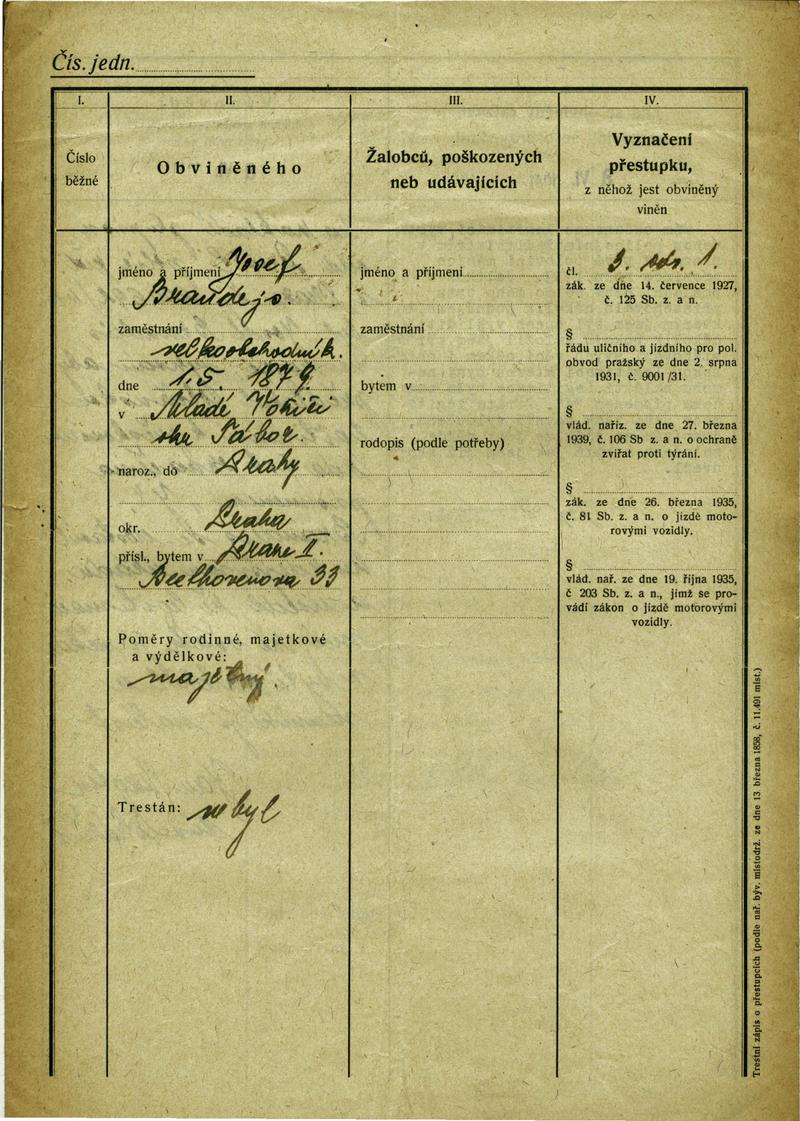 Čís. jedn.
I.
Číslo
běžné
II.
Obviněného
III.
Žalobců, poškozených
neb udávajících
IV.
Vyznačení
přestupku,
z něhož jest obviněný
viněn
jméno a příjmení Josef
Brandejs.
zaměstnání
velkoobchodník.
dne 1.5. 1879.
v Mladé Vožici
okr Tábor.
naroz., do Prahy
okr. Praha
přísl., bytem v Praze II.
Beethovenova 33
Poměry rodinné, majetkové
a výdělkové:
majetný.
Trestán: nebyl
jméno a příjmení
zaměstnání
bytem v
rodopis (podle potřeby)
čl. 3. odst. 1.
zák. ze dne 14. července 1927,
č. 125 Sb. z. a n.
§
řádu uličního a jízdního pro pol.
obvod pražský ze dne 2. srpna
1931, č. 9001/31.
§
vlád. naříz. ze dne 27. března
1939, č. 106 Sb z. a n. o ochraně
zvířat proti týrání.
§
zák. ze dne 26. března 1935,
č. 81 Sb. z. a n. o jízdě moto-
rovými vozidly.
§
vlád. nař. ze dne 19. října 1935,
č 203 Sb. z. a n., jímž se pro-
vádí zákon o jízdě motorovými
vozidly.
Trestní zápis o přestupcích (podle nař. býv. místodrž. ze dne 13 března 1858, č. 11.491 míst.)